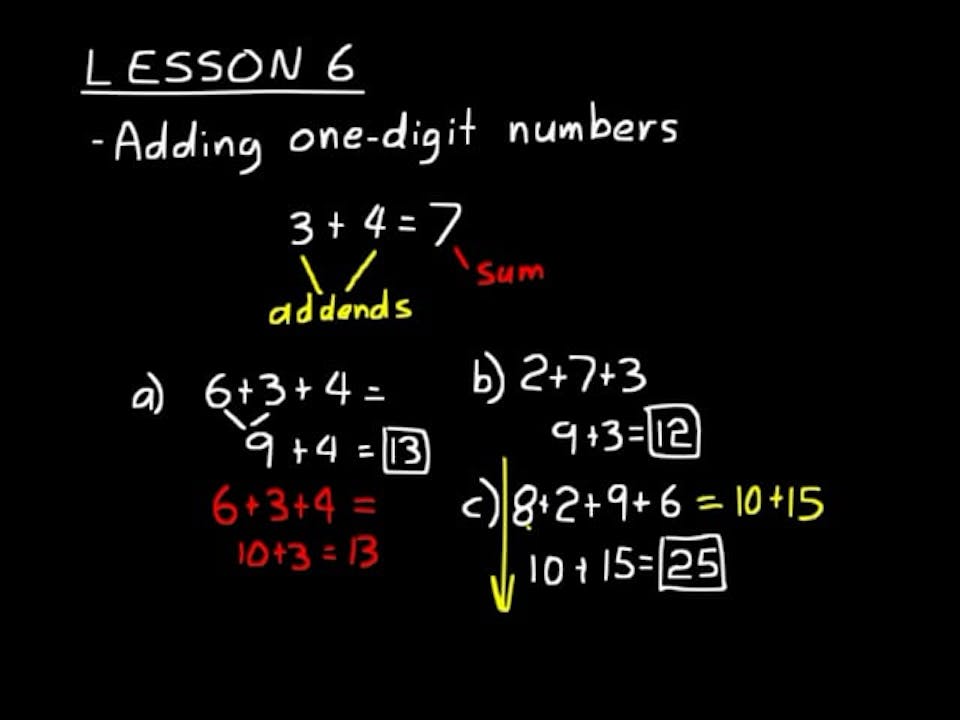 LESSON 6
- Adding one-digit numbers
3 + 4 = 7
sum
addends
a) 6+3+4 =
9 + 4 = 13
6+3+4 =
10+3 = 13
b) 2+7+3
9+3=12
c) 8+2+9+6 = 10+15
10+15=25